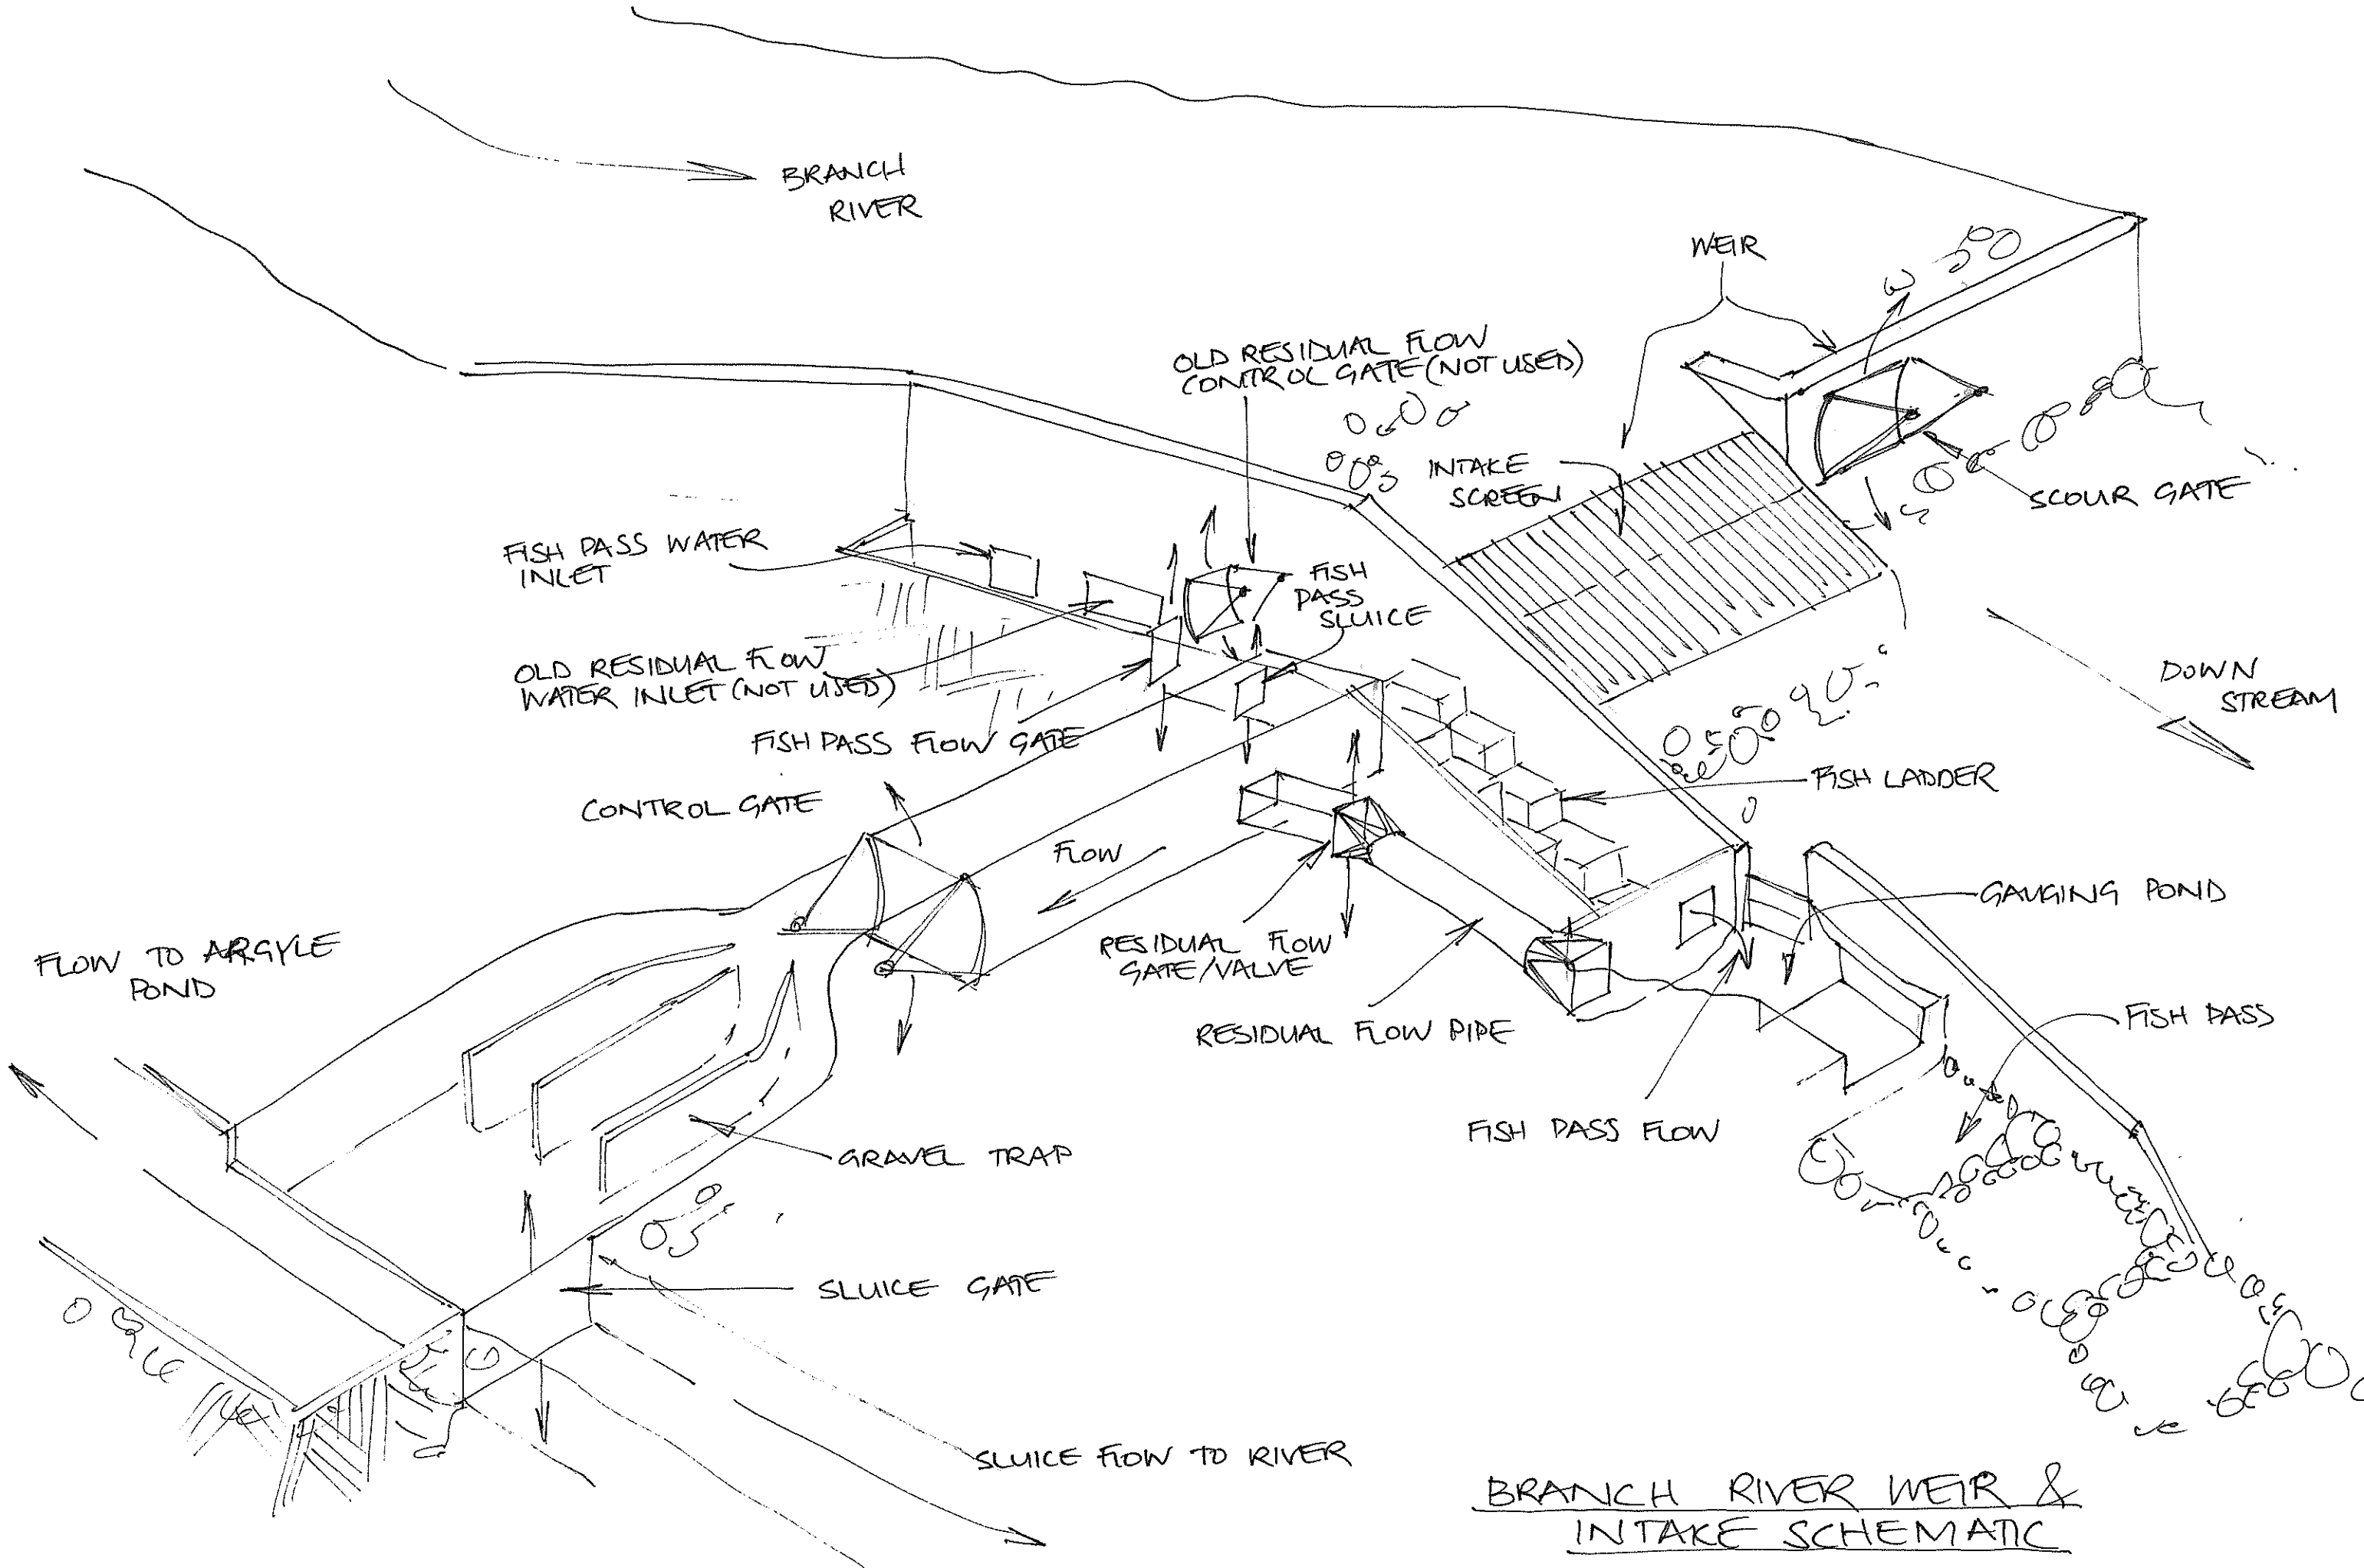 BRANCH
RIVER
WEIR
OLD RESIDUAL FLOW
CONTROL GATE (NOT USED)
INTAKE
SCREEN
SCOUR GATE
FISH PASS WATER
INLET
FISH
PASS
SLUICE
OLD RESIDUAL FLOW
WATER INLET (NOT USED)
DOWN
STREAM
FISH PASS FLOW GATE
CONTROL GATE
FISH LADDER
FLOW
GAUGING POND
FLOW TO ARGYLE
POND
RESIDUAL FLOW
GATE/VALVE
RESIDUAL FLOW PIPE
FISH PASS
FISH PASS FLOW
GRAVEL TRAP
SLUICE GATE
SLUICE FLOW TO RIVER
BRANCH RIVER WEIR &
INTAKE SCHEMATIC